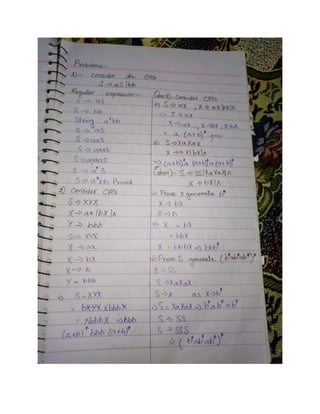 Problems:-
1)- Consider the CFG
S → aS | bb
Regular expression:-
S → aS
S → bb
String a*bb
S → aS
S → aaS
S → aaaS
S → aaaaS
S → a*S
S → a*bb Proved
2) Consider CFG
S → XYX
X → aX | bX | Λ
Y → bbb
S → XYX
X → aX
X → bX
X → Λ
Y = bbb
S = XYX
= bXYX
= ΛbbbX ⇒ bbb
(a+b)* bbb (a+b)*
Consider CFG
S → aX, X → aX|bX|Λ
S → aX
X → aX, X → bX, X → Λ
= a (a+b)*
S → XaXaX
X → aX|bX|Λ
⇒ (a+b)*a (a+b)*a (a+b)*
S → SS|XaXaX|Λ
X → bX|Λ
i) Prove X generate b*
X → bX
X → Λ
⇒ X = bX
= bbX
X = bbbX ⇒ bbb*
ii) Prove S generate (b*ab*ab*)*
S → SS
S → XaXaX
S → Λ as X → b*
S = XaXaX ⇒ b*ab*ab*
S → SS
S → SSS
⇒ (b*ab*ab*)*